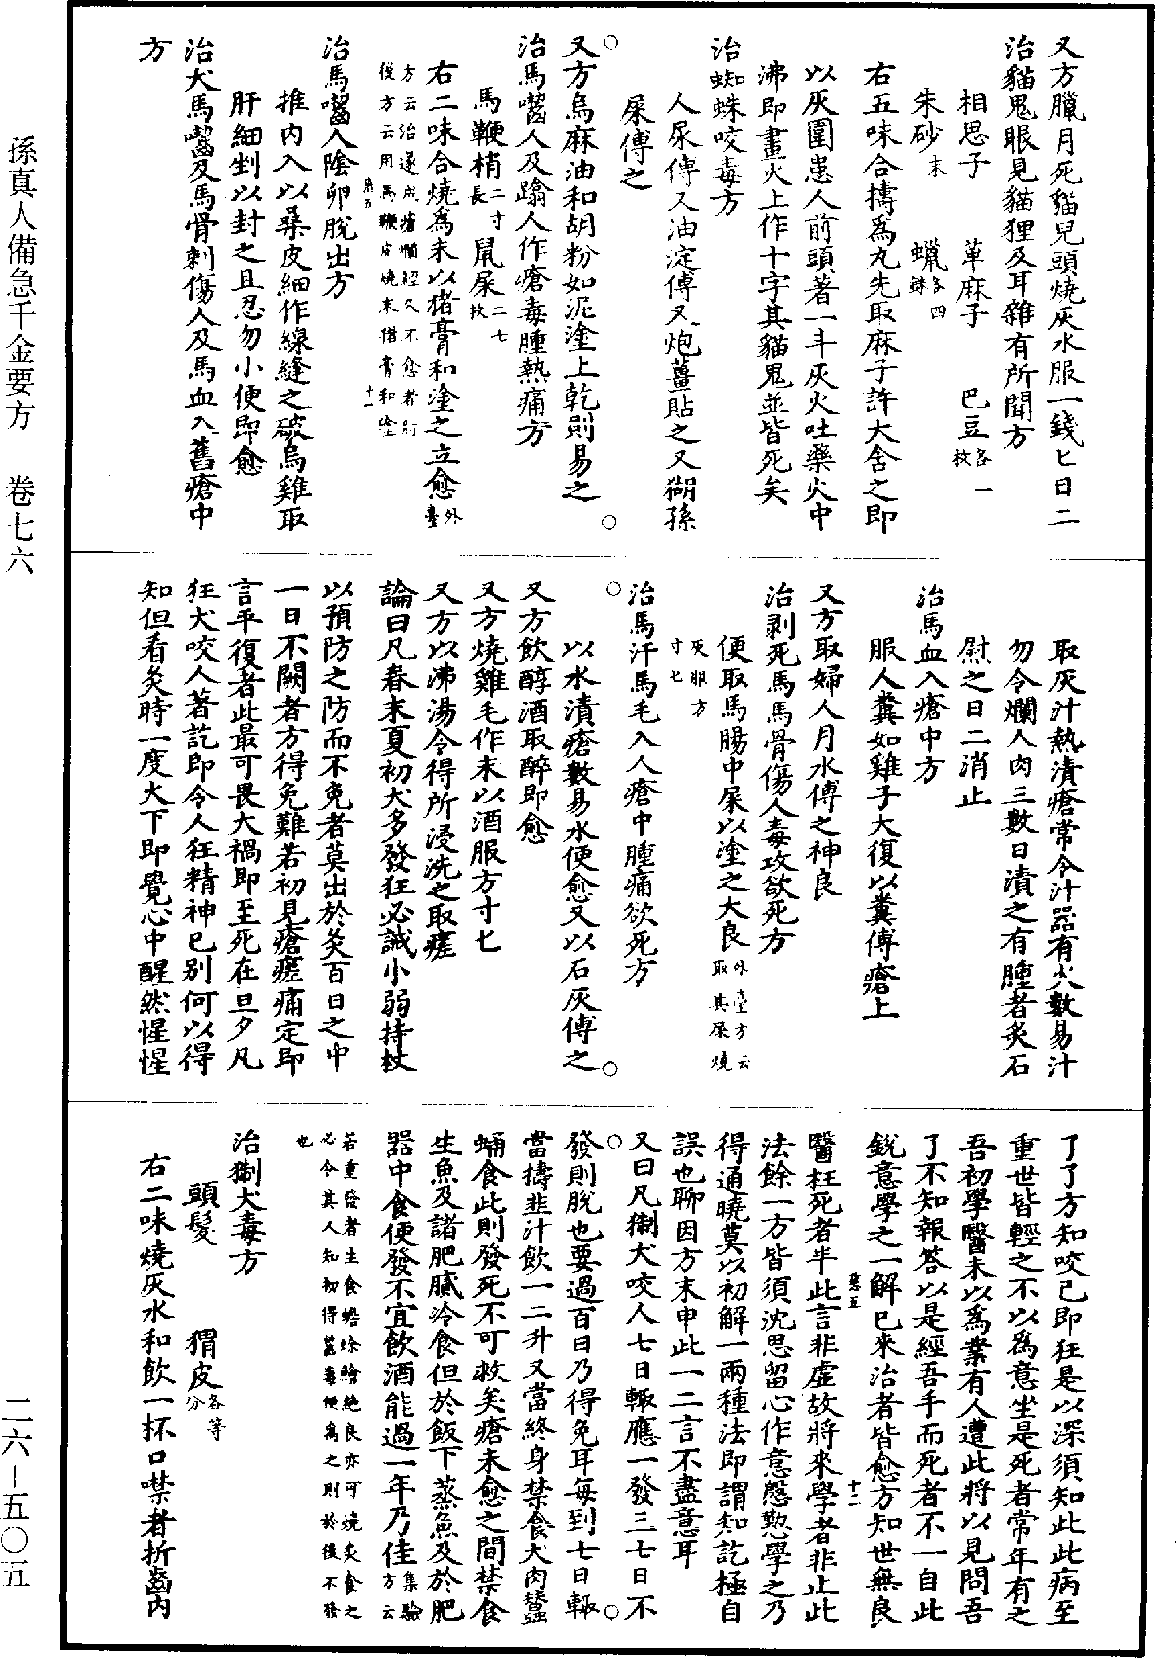 孫真人備急千金要方　卷七六
二六—五〇五
又方臘月死貓兒頭燒灰水服一錢匕日二
治貓鬼眼見貓狸及耳雜有所聞方
相思子　萆麻子　巴豆各一枚
朱砂末　蠟各四銖
右五味合擣為丸先取麻子許大含之即
以灰圍患人前頭著一斗灰火吐藥火中
沸即畫火上作十字其貓鬼並皆死矣
治蜘蛛咬毒方
人尿傅又油淀傅又炮薑貼之又猢孫
屎傅之
○又方烏麻油和胡粉如泥塗上乾則易之○
治馬嚙人及蹹人作瘡毒腫熱痛方
馬鞭梢長二寸鼠屎二七枚
右二味合燒為末以猪膏和塗之立愈外臺
方云治遂成瘡爛經久不愈者肘
後方云用馬鞭皮燒末猪膏和塗
惡五　十一
治馬嚙人陰卵脫出方
推內入以桑皮細作線縫之破烏雞取
肝細剉以封之且忍勿小便即愈
治犬馬嚙及馬骨刺傷人及馬血入舊瘡中
方
取灰汁熱漬瘡常令汁器有火數易汁
勿令爛人肉三數日漬之有腫者炙石
熨之日二消止
治馬血入瘡中方
服人糞如雞子大復以糞傅瘡上
又方取婦人月水傅之神良
治剥死馬馬骨傷人毒攻欲死方
便取馬腸中屎以塗之大良外臺方云取其屎燒
灰服方寸匕
○治馬汗馬毛入人瘡中腫痛欲死方
以水漬瘡數易水便愈又以石灰傅之○
又方飲醇酒取醉即愈
又方燒雞毛作末以酒服方寸匕
又方以沸湯令得所浸洗之取瘥
論曰凡春末夏初犬多發狂必誡小弱持杖
以預防之防而不免者莫出於灸百日之中
一日不闕者方得免難若初見瘡瘥痛定即
言平復者此最可畏大禍即至死在旦夕凡
狂犬咬人著訖即令人狂精神已别何以得
知但看灸時一度大下即覺心中醒然惺惺
了了方知咬已即狂是以深須知此此病至
重世皆輕之不以為意坐是死者常年有之
吾初學醫未以為業有人遭此將以見問吾
了不知報答以是經吾手而死者不一自此
銳意學之一解已來治者皆愈方知世無良
惡五　十二
醫枉死者半此言非虛故將來學者非止此
法餘一方皆須沈思留心作意慇懃學之乃
得通曉莫以初解一兩種法即謂知訖極自
誤也聊因方末申此一二言不盡意耳
又曰凡猘犬咬人七日輒應一發三七日不
○發則脫也要過百日乃得免耳每到七日輒○
當擣韭汁飲一二升又當終身禁食犬肉蠶
蛹食此則發死不可救矣瘡未愈之間禁食
生魚及諸肥膩冷食但於飯下蒸魚及於肥
器中食便發不宜飲酒能過一年乃佳集驗方云
若重發者生食蟾蜍鱠絶良亦可燒炙食之
必令其人知初得囓毒便為之則於後不發
也
治猘犬毒方
頭髮　猬皮各等分
右二味燒灰水和飲一杯口噤者折齒內